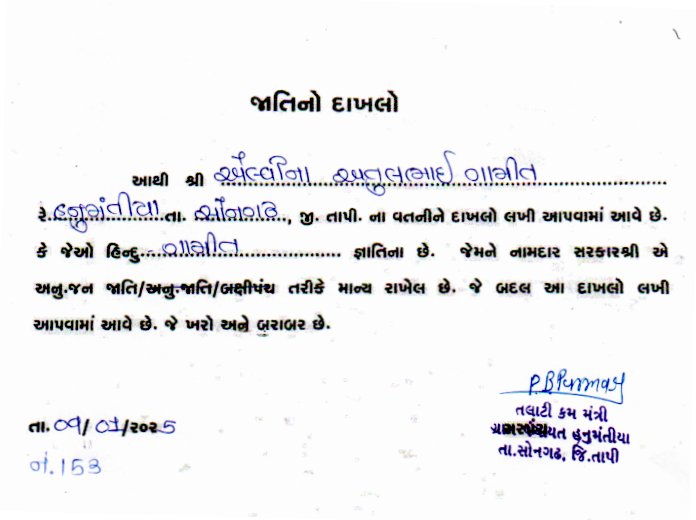 જાતિનો દાખલો
આથી શ્રી એલ્વીના અતુલભાઈ ગામીત
રે. હનુમંતીયા તા. સોનગઢ, જી. તાપી. ના વતનીને દાખલો લખી આપવામાં આવે છે.
કે જેઓ હિન્દુ ગામીત જ્ઞાતિના છે. જેમને નામદાર સરકારશ્રી એ
અનુ.જન જાતિ/અનુ.જાતિ/બક્ષીપંચ તરીકે માન્ય રાખેલ છે. જે બદલ આ દાખલો લખી
આપવામાં આવે છે. જે ખરો અને બરાબર છે.
P.B.Parmar
તલાટી કમ મંત્રી
હનુમંતીયા
તા.સોનગઢ, જિ.તાપી
તા. 09/07/૨૦૨5
નં. 153